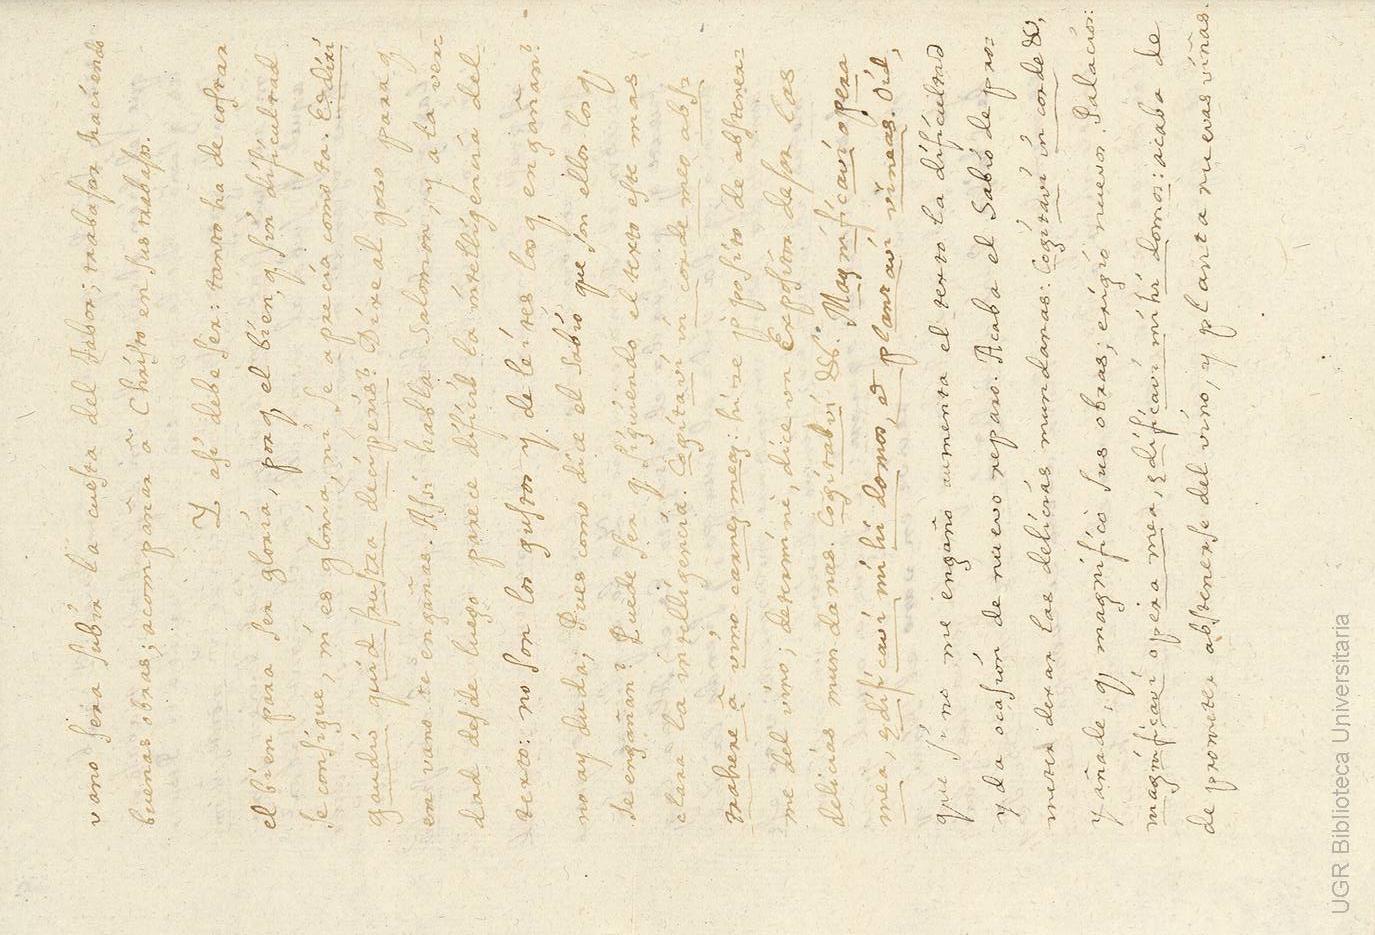 vano sera subir la cuesta del Tabor; trabajar haciendo
buenas obras; acompañar a Christo en sus trabajos.
Y asi debe ser: tanto ha de costar
el bien para ser gloria, porq el bien, q sin dificultad
se consigue, ni es gloria, ni se aprecia como ta. Et dixi
gaudio quid frustra deciperis? Dixe al gozo para q
en vano te engañas. Assi habla Salomon, y a la ver=
dad desde luego parece dificil la intelligencia del
texto: no son los gustos y deleites los q engañan?
no ay duda; Pues como dice el Sabio que son ellos los q
se engañan? Puede ser q siguiendo el texto este mas
clara la intelligencia. Cogitavi in corde meo abs
trahere a vino carnem meã: hize pposito de abstener=
me del vino; determinè, dice un Expositor dejar las
delicias mundanas. Cogitabvi &c. Magnificavi opera
mea, edificavi mihi domos, et plantavi vineas. Oid,
que si no me engaño aumenta el texto la dificultad
y da ocasion de nuevo reparo. Acaba el Sabio de pro=
meter dexar las delicias mundanas: Cogitavi in corde &,
y añade, q magnificò sus obras; erigiò nuevos Palacios:
magnificavi opera mea, edificavi mihi domos: acaba de
de prometer abstenerse del vino, y planta nuevas viñas.
UGR Biblioteca Universitaria